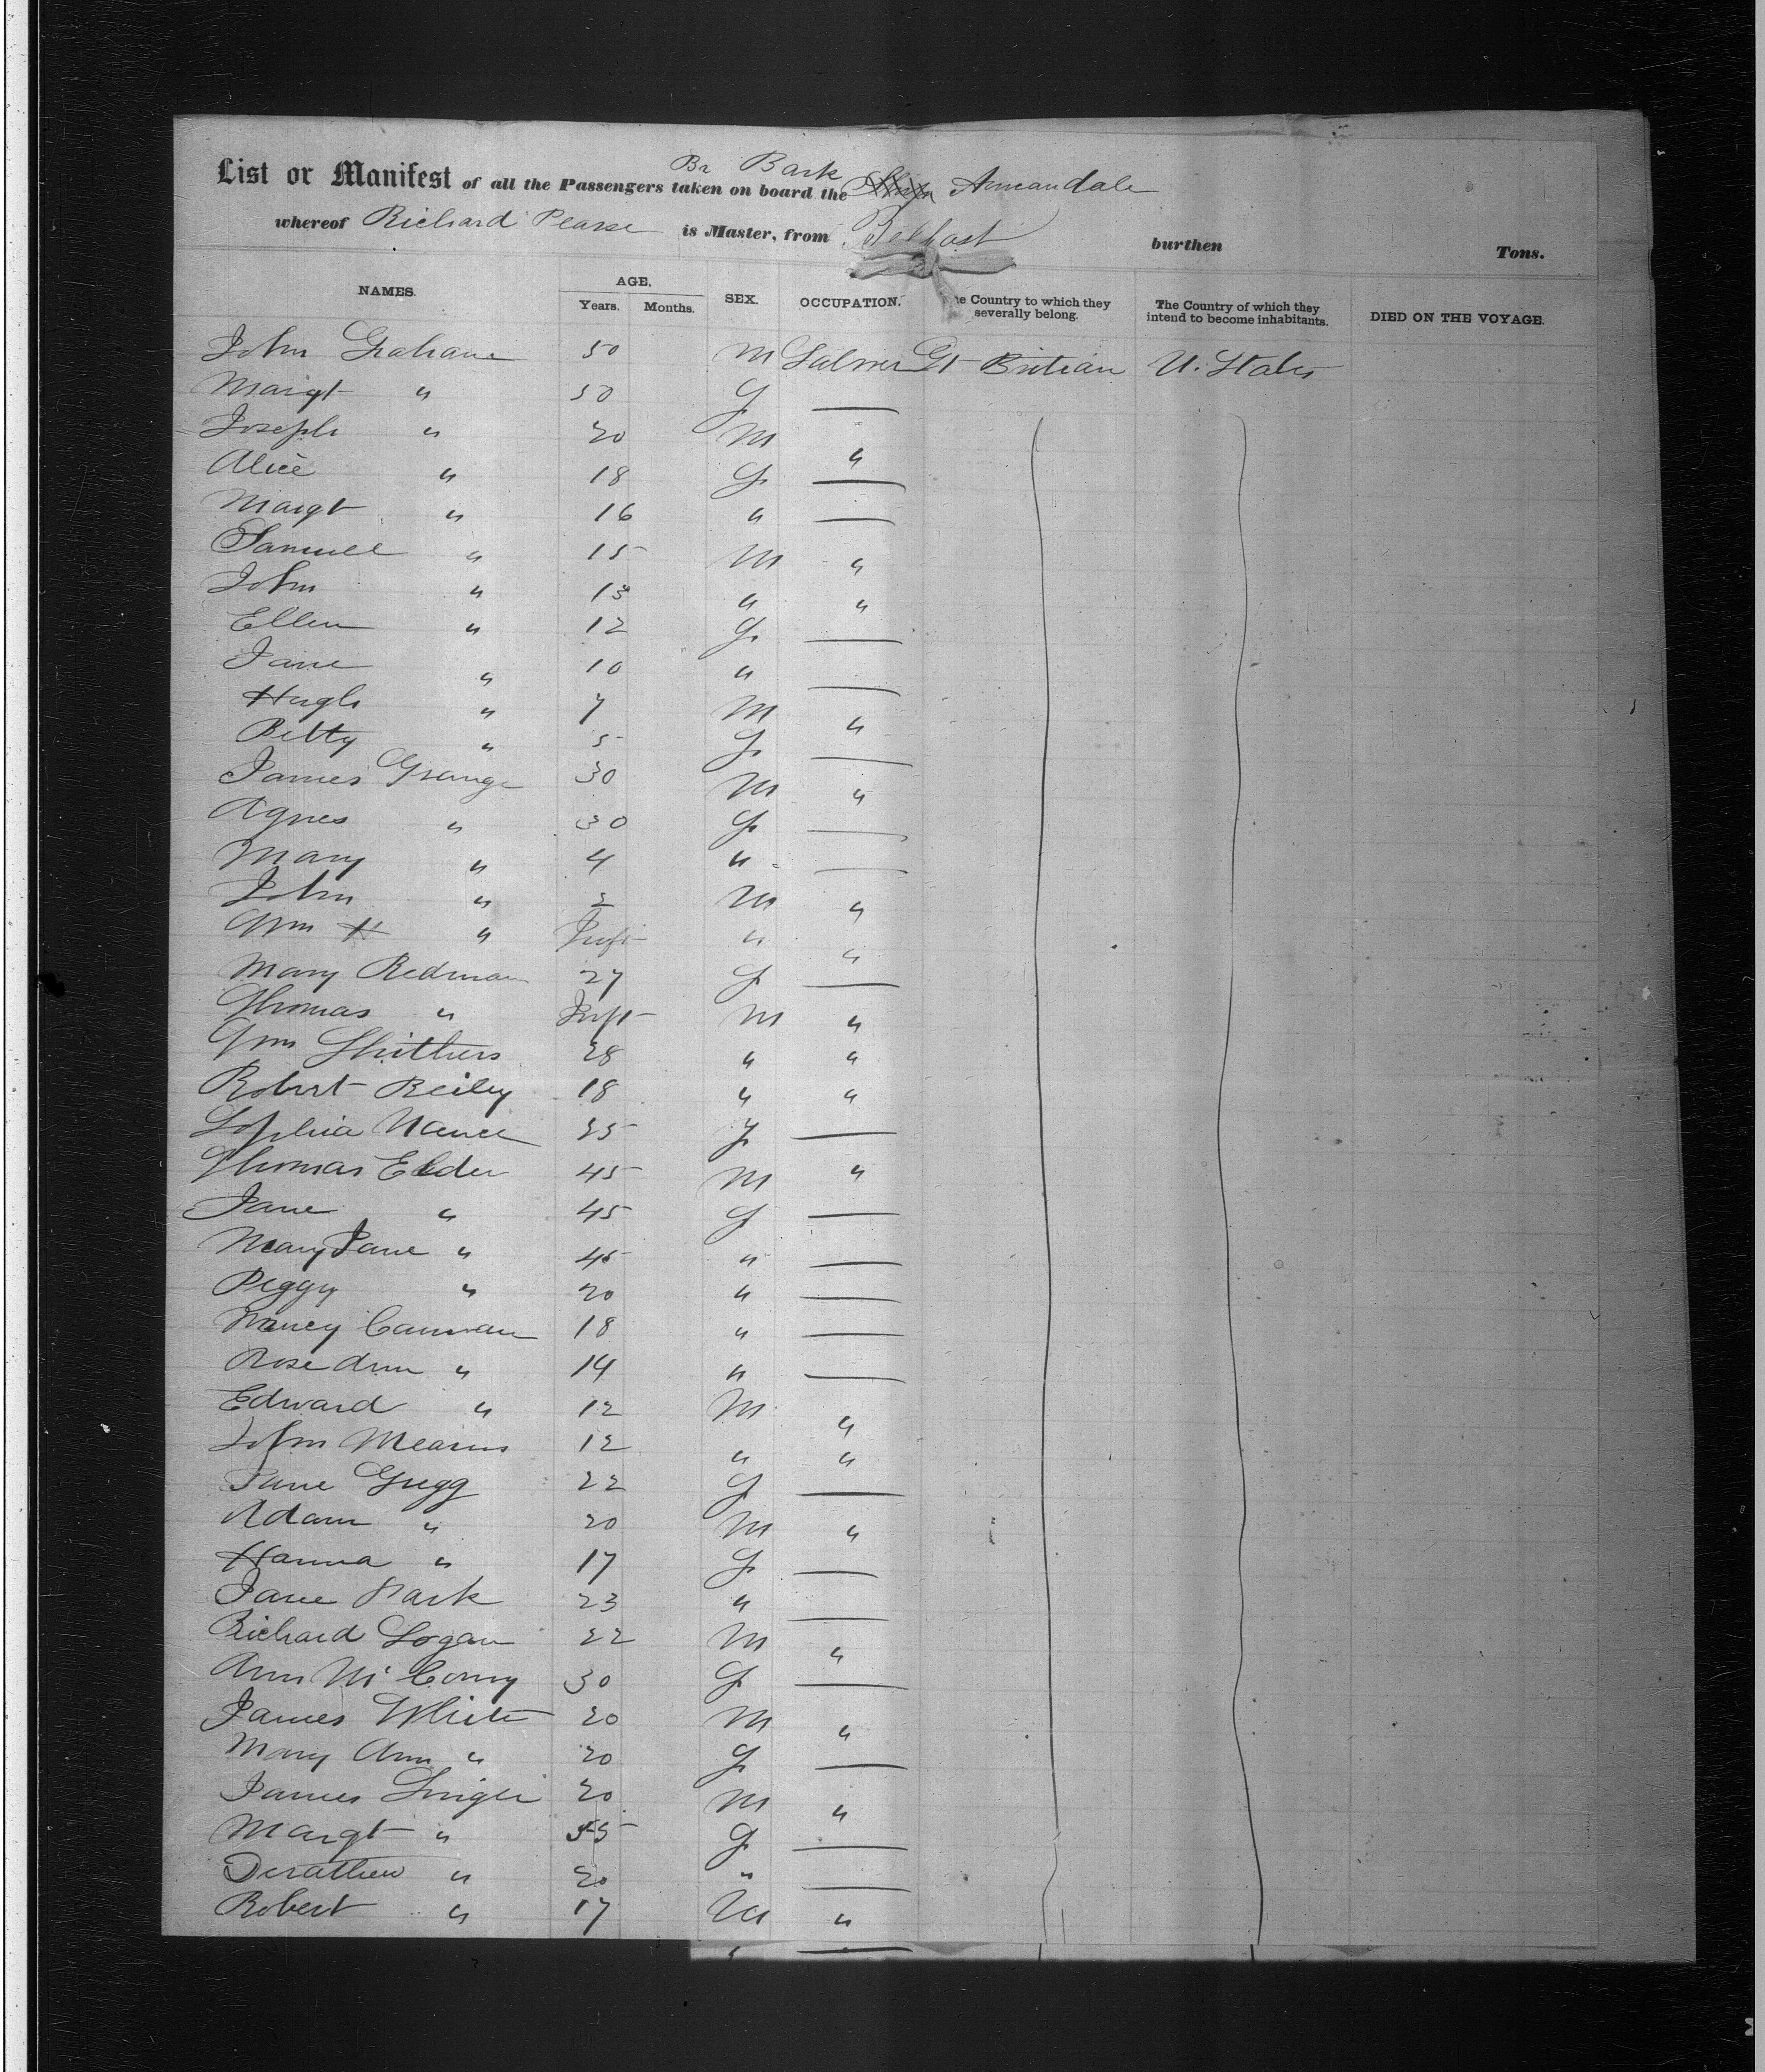 List or Manifest of all the Passengers taken on board the Br Bark Annandale
whereof Richard Pearse is Master, from Belfast burthen Tons.
NAMES. AGE. Years. Months. SEX. OCCUPATION. The Country to which they severally belong. The Country of which they intend to become inhabitants. DIED ON THE VOYAGE.
John Graham 50 M Gt Britian U. States
Margt " 50 F —
Joseph " 20 M "
Alice " 18 F —
Margt " 16 " —
Samuel " 15 M "
John " 13 " "
Ellen " 12 F —
Jane " 10 " —
Hugh " 7 M "
Betty " 5 F —
James Grange 30 M "
Agnes " 30 F —
Mary " 4 " —
John " 2 M "
Wm H " Inft " "
Mary Redman 27 F —
Thomas " Inft M "
Wm Smithers 28 " "
Robert Reiley 18 " "
Sophia Nance 25 F —
Thomas Elder 45 M "
Jane " 45 F —
Mary Jane " 45 " —
Peggy " 20 " —
Nancy Cannan 18 " —
Rose Ann " 14 " —
Edward " 12 M "
John Mearns 12 " "
Jane Gregg 22 F —
Adam " 20 M "
Hanna " 17 F —
Jane Park 23 " —
Richard Logan 22 M "
Ann McComy 30 F —
James White 20 M "
Mary Ann " 20 F —
James 20 M "
Margt " 55 F —
" 20 " —
Robert " 17 M "